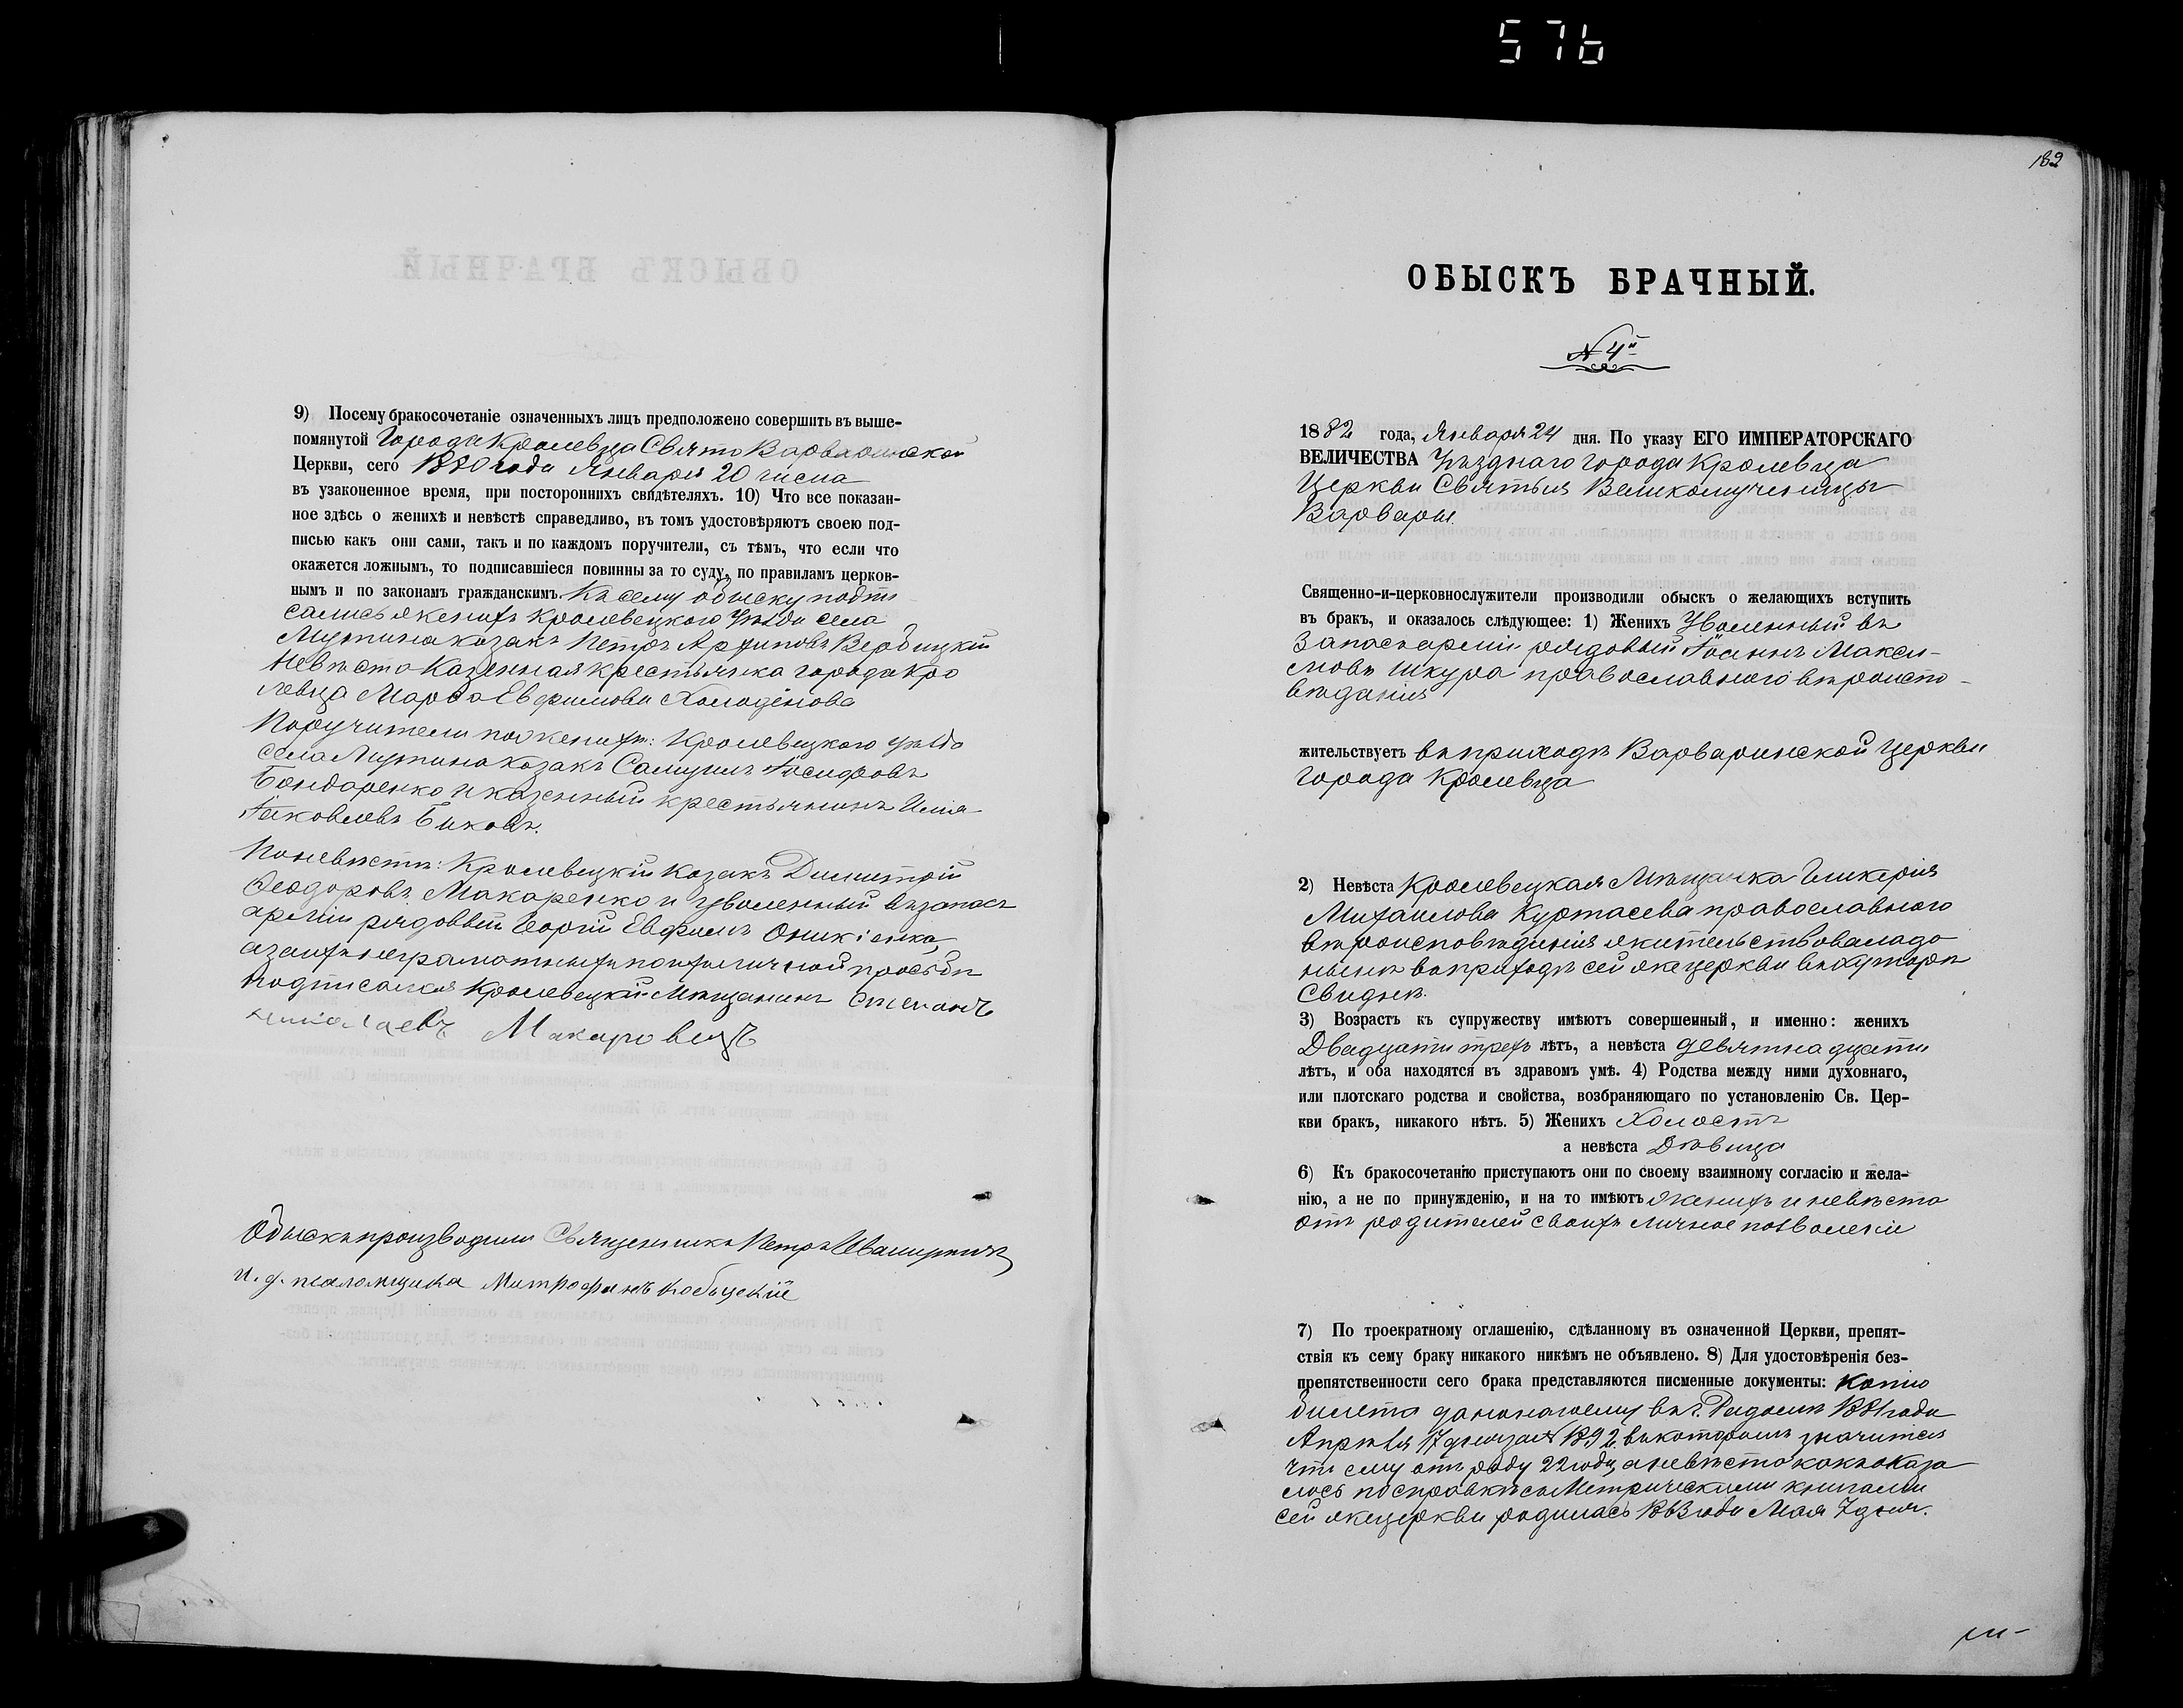 576
9) Посему бракосочетаніе означенныхъ лицъ предположено совершить въ выше-
помянутой Города Кролевца Свято Варваринской
Церкви, сего 1880 года Января 20 числа
въ узаконенное время, при постороннихъ свидѣтеляхъ. 10) Что все показан-
ное здѣсь о женихѣ и невѣстѣ справедливо, въ томъ удостовѣряютъ своею под-
писью какъ они сами, такъ и по каждомъ поручители, съ тѣмъ, что если что
окажется ложнымъ, то подписавшіеся повинны за то суду, по правиламъ церков-
нымъ и по законамъ гражданскимъ. Къ сему обыску подпи
сались женихъ Кролевецкого уѣзда села
Мутина козакъ Петръ Архиповъ Вербицкій
Невѣста Казенная крестьянка города Кро
левца Марфа Евфимова Холодіонова
Поручители по женихѣ: Кролевецкого уѣзда
села Мутина козакъ Самуилъ Іосифовъ
Бондаренко и казенный крестьянинъ Илія
Іаковлевъ Биковъ.
По невѣстѣ: Кролевецкій Козакъ Димитрій
Ѳеодоровъ Макаренко и уволенный въ запасъ
арміи рядовый Георгій Евфимъ Оникіенко,
а за ихъ неграмотныхъ по ихъ личной просьбѣ
подписался Кролевецкій Мѣщанинъ Степанъ
Николаевъ Макаровецъ
Обыскъ производили Священникъ Петръ
и. д. псаломщика Митрофанъ Кобыцскій
182
ОБЫСКЪ БРАЧНЫЙ.
N 4й
1882 года, Января 24 дня. По указу ЕГО ИМПЕРАТОРСКАГО
ВЕЛИЧЕСТВА Уѣзднаго города Кролевца
Церкви Святыя Великомученицы
Варвары
Священно-и-церковнослужители производили обыскъ о желающихъ вступить
въ бракъ, и оказалось слѣдующее: 1) Женихъ Уволенный въ
Запасъ арміи рядовый Іоаннъ Макси-
мовъ Шкура православного вѣроиспо-
вѣданія
жительствуетъ въ приходѣ Варваринской церкви
города Кролевца
2) Невѣста Кролевецкая Мѣщанка Гликерія
Михаилова Куртасева православного
вѣроисповѣданія жительствовала до
нынѣ въ приходѣ сей же церкви въ хуторѣ
Свиднѣ.
3) Возрастъ къ супружеству имѣютъ совершенный, и именно: женихъ
Двадцати трехъ лѣтъ, а невѣста девятнадцати
лѣтъ, и оба находятся въ здравомъ умѣ. 4) Родства между ними духовнаго,
или плотскаго родства и свойства, возбраняющаго по установленію Св. Цер-
кви бракъ, никакого нѣтъ. 5) Женихъ Холостъ
а невѣста Дѣвица
6) Къ бракосочетанію приступаютъ они по своему взаимному согласію и жела-
нію, а не по принужденію, и на то имѣютъ женихъ и невѣста
отъ родителей своихъ личное позволеніе
7) По троекратному оглашенію, сдѣланному въ означенной Церкви, препят-
ствія къ сему браку никакого никѣмъ не объявлено. 8) Для удостовѣренія без-
препятственности сего брака представляются писменные документы: Копію
билета въ г. Радомѣ 1881 года
Апрѣля 17 дня за N 1892 въ которомъ значится
что ему отъ роду 22 года, а невѣста какъ оказа
лось по справкѣ съ Метрическими книгами
сей же церкви родилась 1863 года Мая 7 дня.